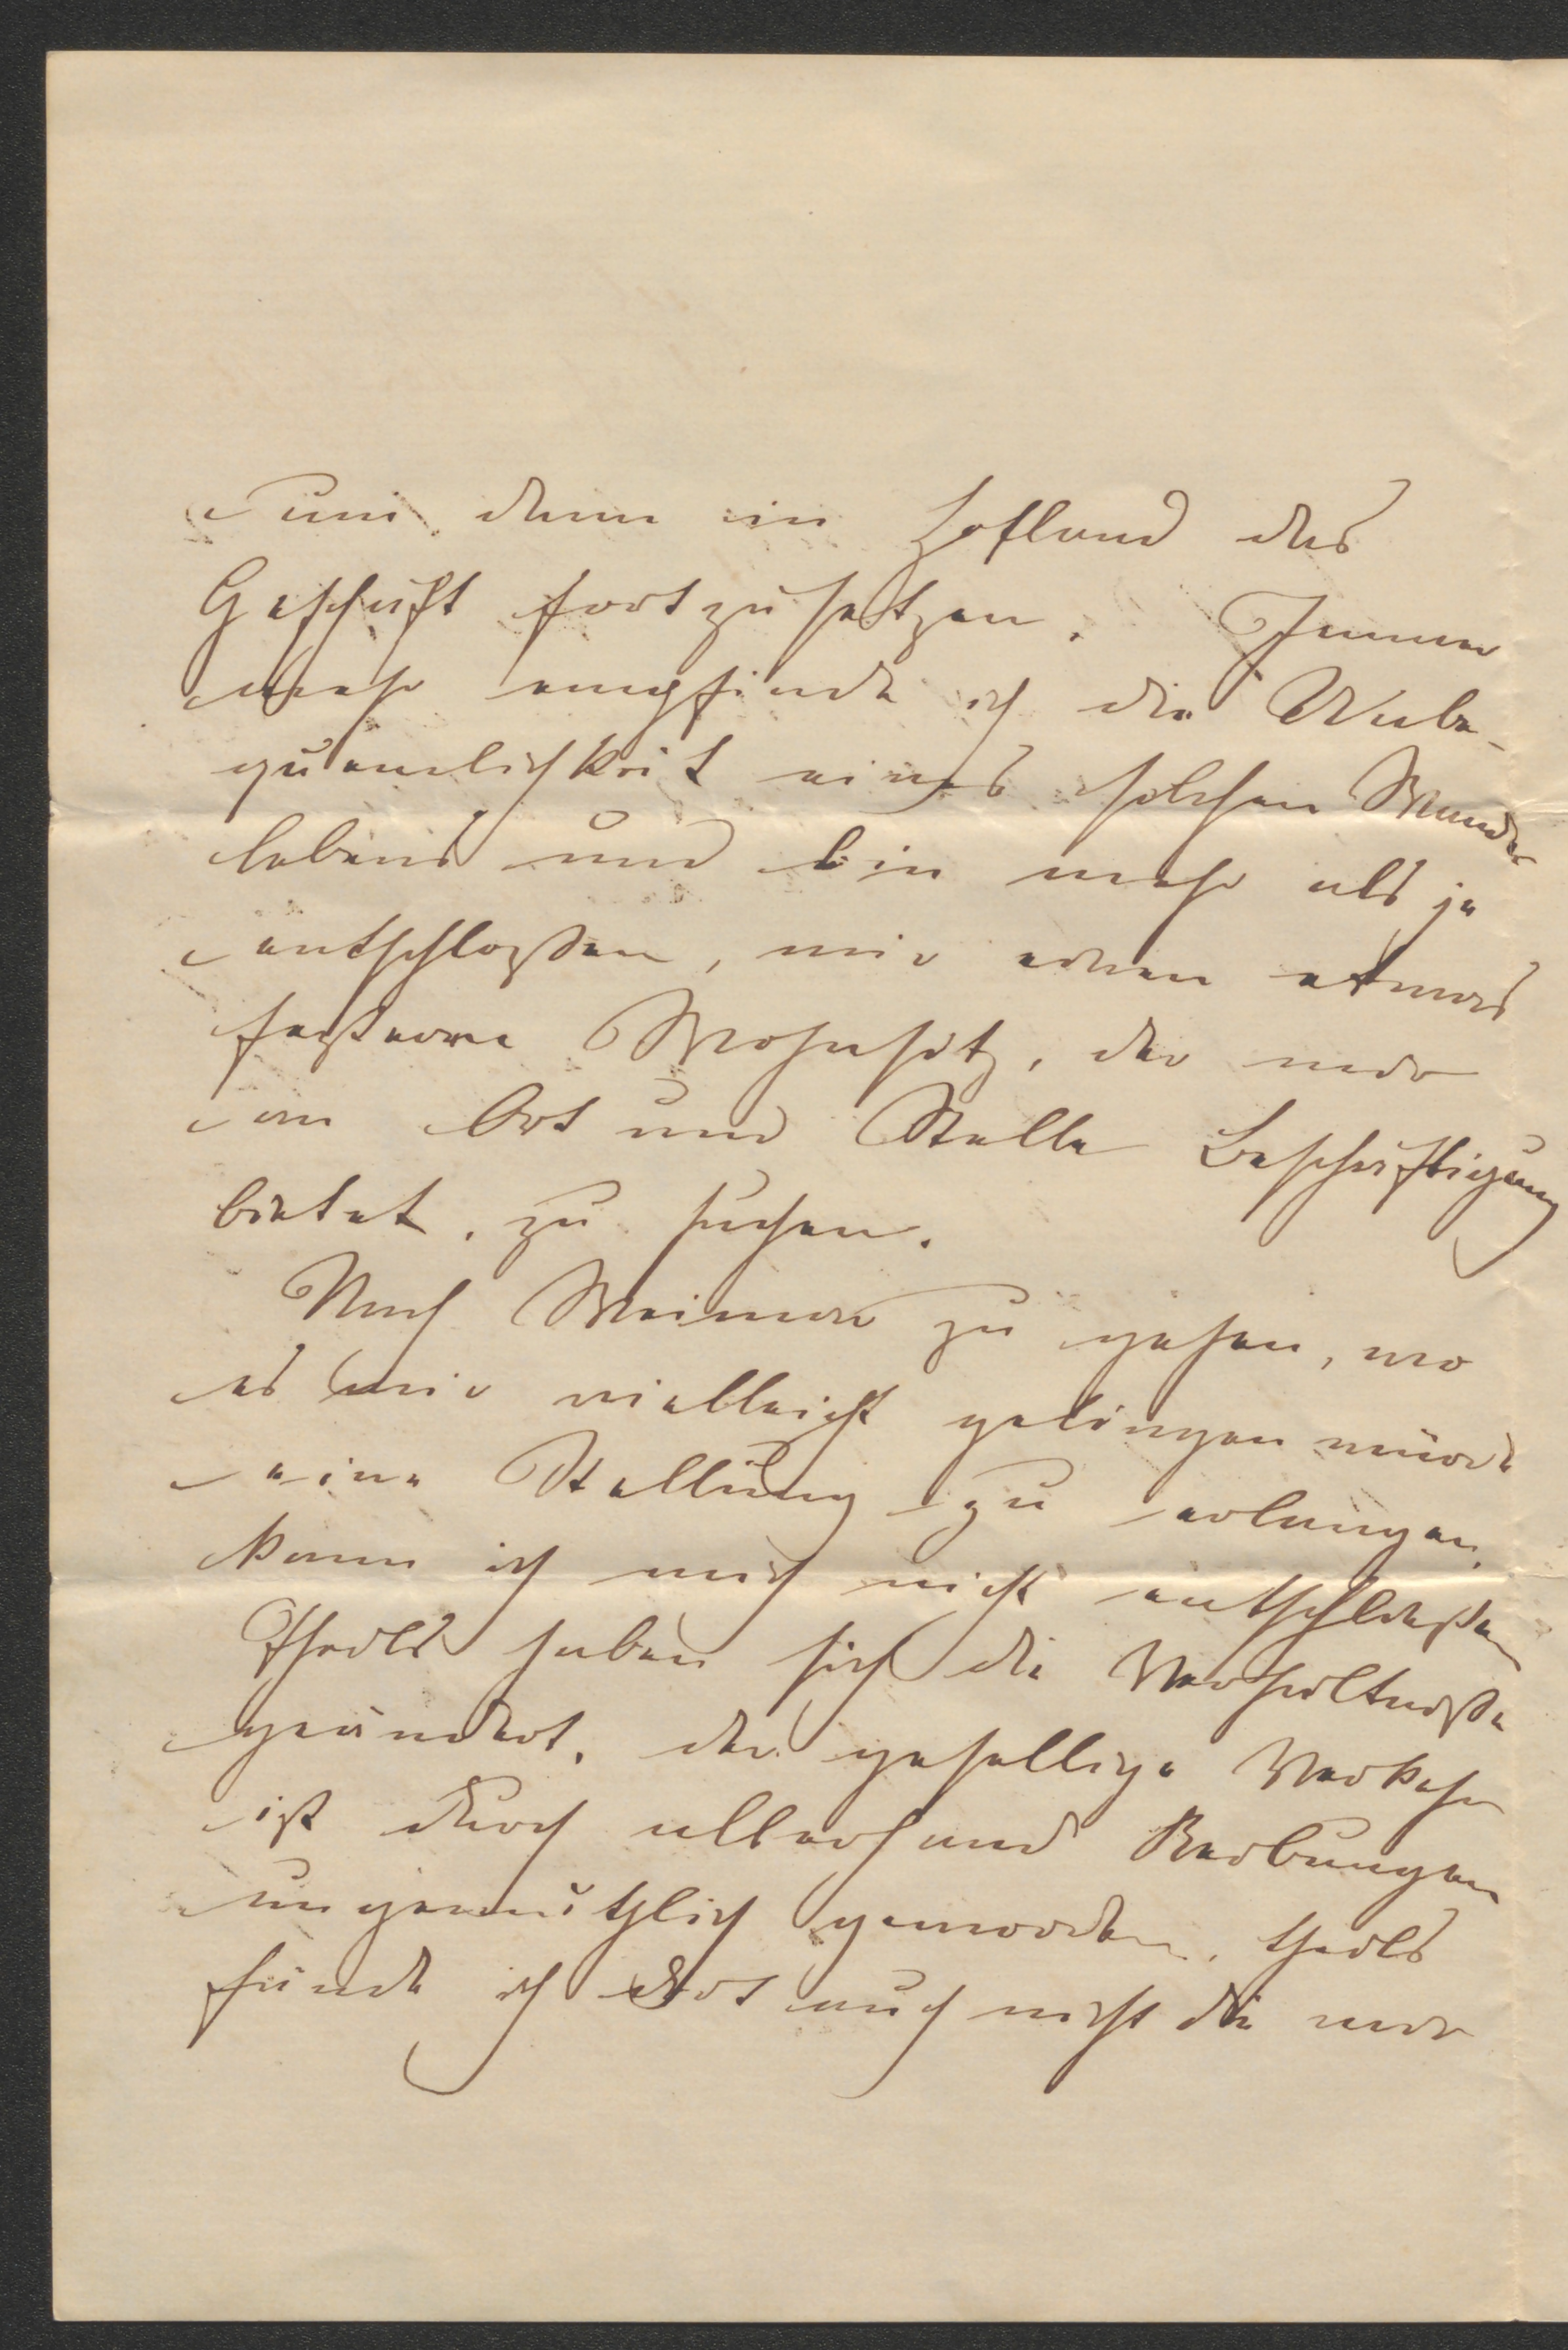 um dann in Holland das
Geschäft fortzusetzen. Immer
mehr empfinde ich die Unbe-
quemlichkeit eines solchen Wander
lebens und bin mehr als je
entschloßen, mir einen etwas
festeren Wohnsitz, der mir
an Ort und Stelle Beschäftigung
bietet, zu suchen.
Nach Weimar zu gehen, wo
es mir vielleicht gelingen würde
eine Stellung zu erlangen,
kann ich mich nicht entschließen
Theils haben sich die Verhältniße
geändert, der gesellige Verkehr
ist durch allerhand Reibungen
ungemüthlich geworden, theils
fände ich dort auch nicht die mir